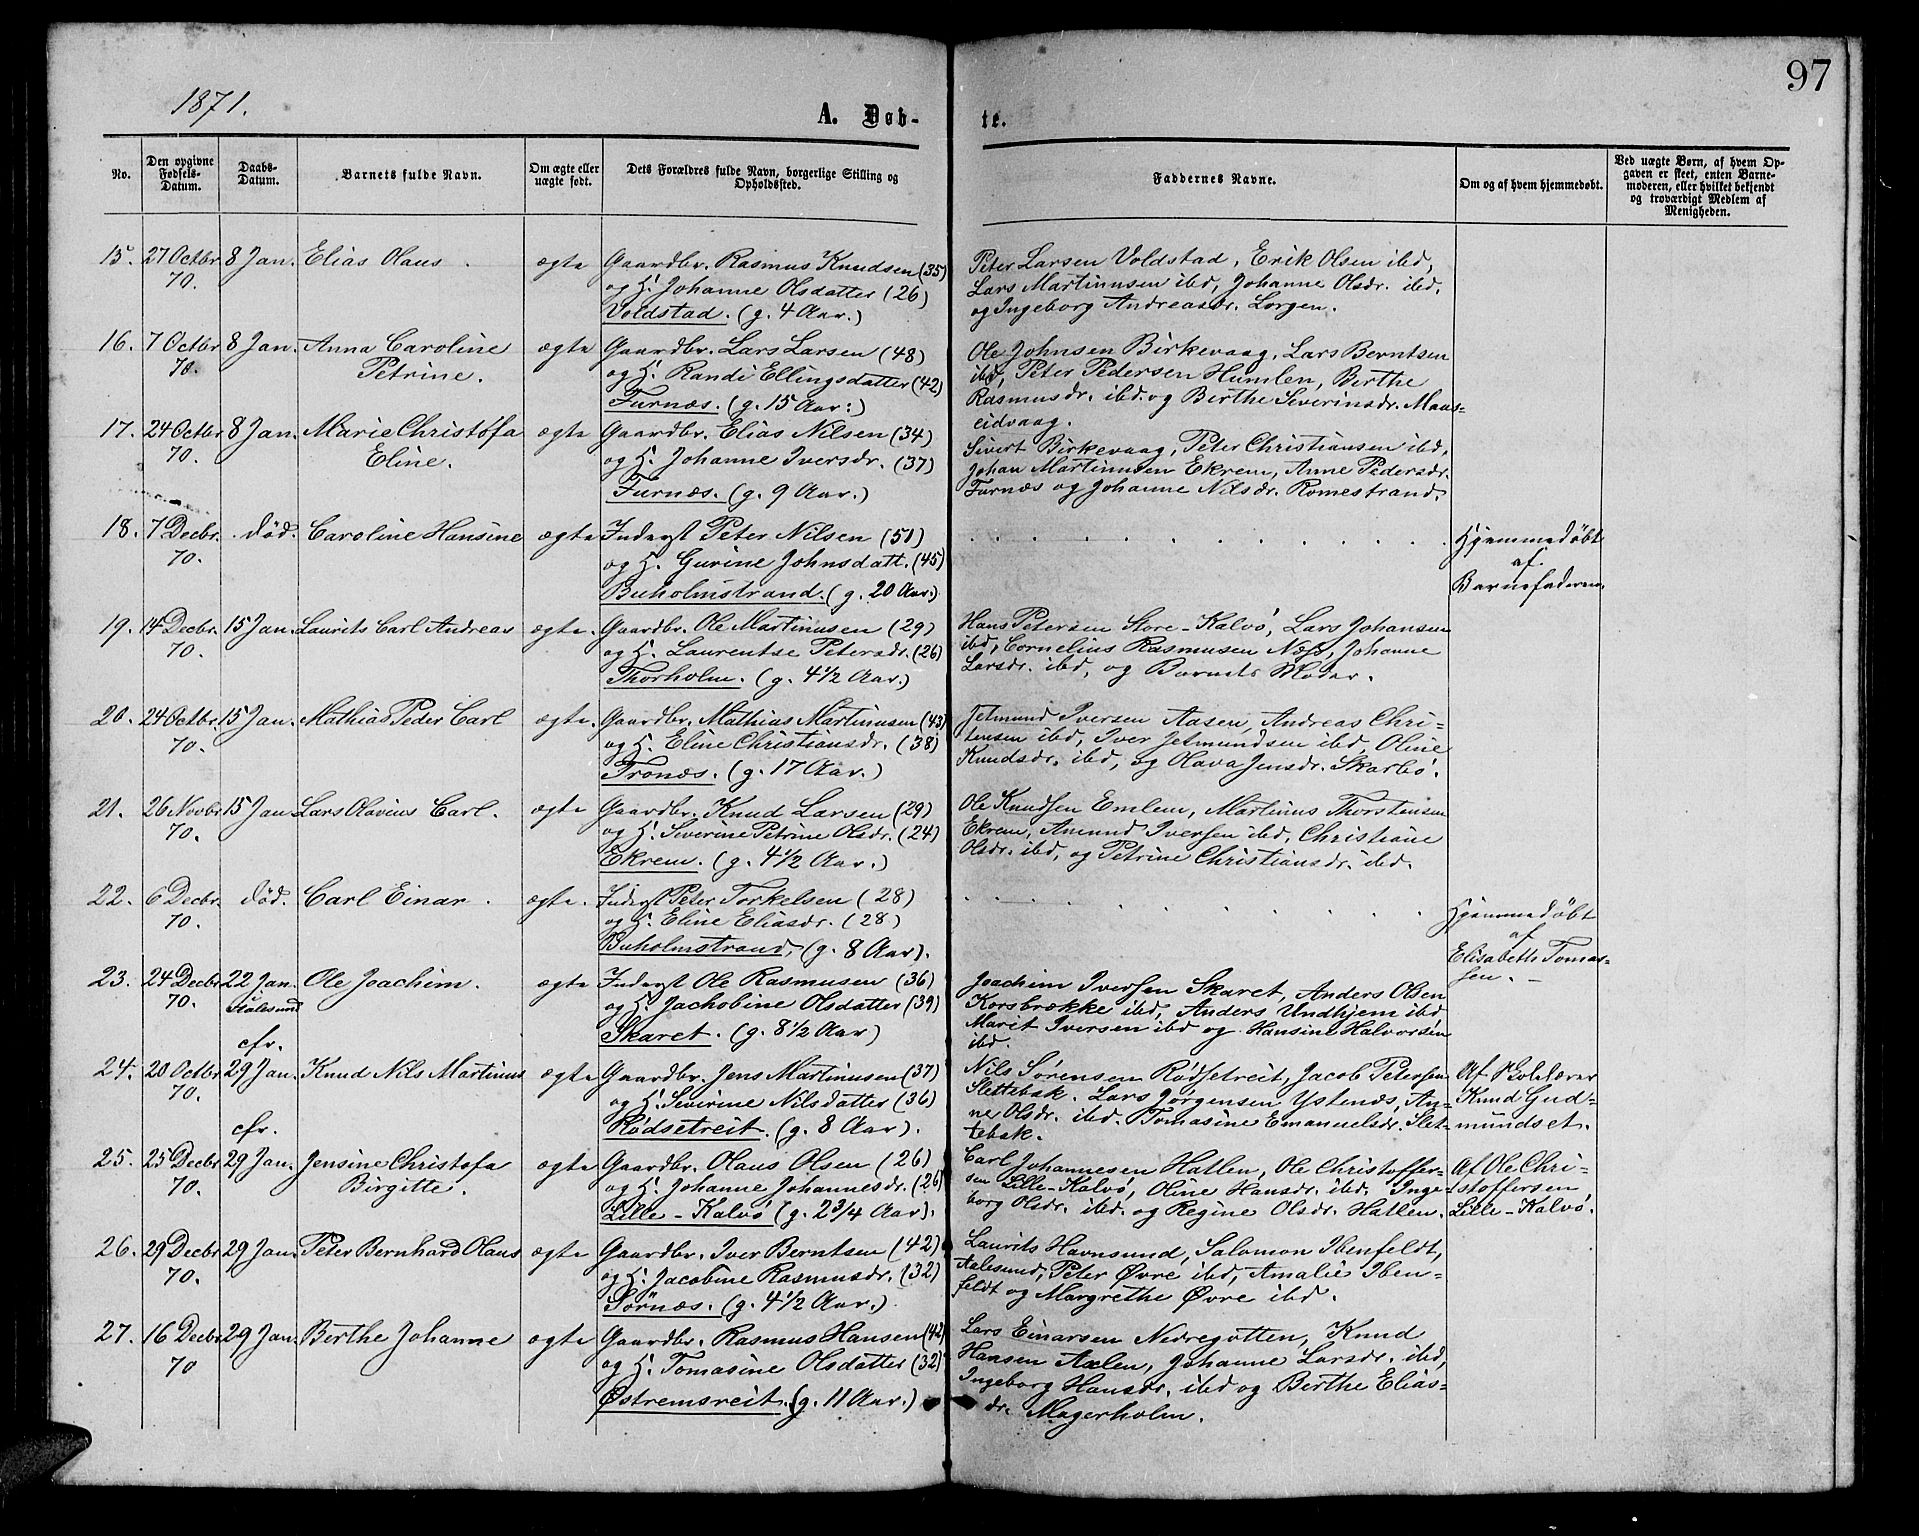 97
1871.
A. Døb-
te.
No.
Den opgivne
Fødsels-
Datum.
Daabs-
Datum.
Barnets fulde Navn.
Om ægte eller
uægte født.
Dets Forældres fulde Navn, borgerlige Stilling og
Opholdssted.
Faddernes Navne.
Om og af hvem hjemmedøbt.
Ved uægte Børn, af hvem Op-
gaven er skeet, enten Barne-
moderen, eller hvilket bekjendt
og troværdigt Medlem af
Menigheden.
15. 27 Octbr. 8 Jan. Elias Olaus. ægte Gaardbr. Rasmus Knudsen (35)
70. og H. Johanne Olsdatter (26)
Voldstad. (g. 4 Aar.)
Peter Larsen Voldstad, Erik Olsen ibd,
Lars Martinusen ibd, Johanne Olsdr. ibd.
og Ingeborg Andreasdr. Lorgen.
16. 7 Octbr 8 Jan. Anna Caroline ægte Gaardbr. Lars Larsen (48)
70. Petrine. og H. Randi Ellingsdatter (42)
Furnæs. (g. 15 Aar.)
Ole Johnsen Birkevaag, Lars Berntsen
ibd, Peter Pedersen Humlen, Berthe
Rasmusdr. ibd. og Berthe Severinsdr. Maus-
eidvaag.
17. 24 Octbr 8 Jan. Marie Christofa ægte Gaardbr. Elias Nilsen (34)
70. Eline. og H. Johanne Iversdr. (37)
Furnæs. (g. 9 Aar.)
Sivert Birkevaag, Peter Christiansen ibd,
Johan Martinusen Ekrem, Anne Pedersdr.
Furnæs og Johanne Nilsdr. Romestrand.
18. 7 Decbr. død. Caroline Hansine ægte Inderst Peter Nilsen (51)
70. og H. Gurine Johnsdatt. (45)
Buholmstrand. (g. 20 Aar.)
Hjemmedøbt
af
Barnefaderen.
19. 14 Decbr. 15 Jan. Laurits Carl Andreas ægte. Gaardbr. Ole Martinusen (29)
70. og H. Laurentse Petersdr. (26)
Thorholm. (g. 4 1/2 Aar.)
Hans Petersen Store-Kalvø, Lars Johansen
ibd, Cornelius Rasmusen Næss, Johanne
Larsdr. ibd, og Barnets Moder.
20. 24 Octbr. 15 Jan. Mathias Peder Carl ægte. Gaardbr. Mathias Martinusen (43)
70. og H. Eline Christiansdr. (38)
Tronæs. (g. 17 Aar.)
Jetmund Iversen Aasen, Andreas Chri-
stensen ibd, Iver Jetmundsen ibd, Oline
Knudsdr. ibd, og Olava Jensdr. Skarbø.
21. 26 Novbr 15 Jan Lars Olavius Carl. ægte Gaardbr. Knud Larsen (29)
70. og H. Severine Petrine Olsdr. (24)
Ekrem. (g. 4 1/2 Aar.)
Ole Knudsen Emlem, Martinus Thorstensen
Ekrem, Amund Iversen ibd, Christiane
Olsdr. ibd, og Petrine Christiansdr. ibd.
22. 6 Decbr. død. Carl Einar. ægte. Inderst Peter Torkelsen (28)
70. og H. Eline Eliasdr. (28)
Buholmstrand, (g. 8 Aar).
Hjemmedøbt
af
Elisabeth Tomas-
sen.
23. 24 Decbr 22 Jan. Ole Joachim. ægte Inderst Ole Rasmusen (36)
70. og H. Jachobine Olsdatter (39)
Skaret. (g. 8 1/2 Aar)
Joachim Iversen Skaret, Anders Olsen
Korsbrække ibd, Anders Undhjem ibd
Marit Iversen ibd og Hansine Halvorsen
ibd.
cfr.
24. 20 Octbr 29 Jan. Knud Nils Martinus ægte Gaardbr. Jens Martinusen (37)
70. og H. Severine Nilsdatter (36)
Rødsetreit. (g. 8 Aar).
Nils Sørensen Rødsetreit, Jacob Petersen
Slettebak. Lars Jørgensen Ystenæs, An-
ne Olsdr. ibd. Tomasine Emanuelsdr. Slet-
tebak.
Af Skolelærer
Knud Gud-
mundset.
cfr.
25. 25 Decbr 29 Jan. Jensine Christofa ægte Gaardbr. Olaus Olsen (26)
70. Birgitte. og H. Johanne Johannesdr. (26)
Lille-Kalvø (g. 2 3/4 Aar).
Carl Johannesen Hatlen, Ole Christoffer-
sen Lille-Kalvø, Oline Hansdr. ibd. Inge-
borg Olsdr. ibd. og Regine Olsdr. Hatlen.
Af Ole Chri-
stoffersen
Lille-Kalvø.
26. 29 Decbr 29 Jan. Peter Bernhard Olaus ægte Gaardbr. Iver Berntsen (42)
70. og H. Jacobine Rasmusdr. (32)
Sørnæs. (g. 4 1/2 Aar.)
Laurits Havnsund, Salomon Ibenfeldt,
Aalesund, Peter Øvre ibd, Amalie Iben-
feldt og Margrethe Øvre ibd.
27. 16 Decbr 29 Jan. Berthe Johanne ægte Gaardbr. Rasmus Hansen (42)
70 og H. Tomasine Olsdatter (32)
Østremsreit. (g. 11 Aar.)
Lars Einarsen Nedregotten, Knud
Hansen Axlen, Johanne Larsdr. ibd,
Ingeborg Hansdr. ibd og Berthe Elias-
dr. Magerholm.